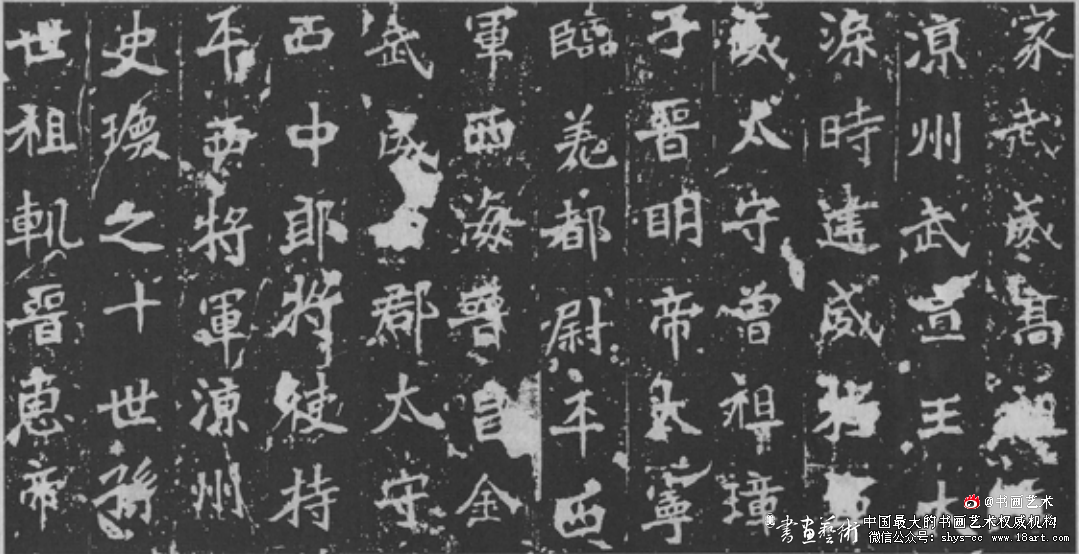 家武威高祖
涼州武宣王大
渠時建威將軍
威太守曾祖璋
子晉明帝太寧
臨羌都尉平西
軍西海晉昌金
武威郡太守
西中郎將使持
平西將軍涼州
史瓊之十世孫
世祖軌晉惠帝
@书画艺术
書畫藝術 中国最大的书画艺术权威机构
微信公众号: shys-cc www.18art.com